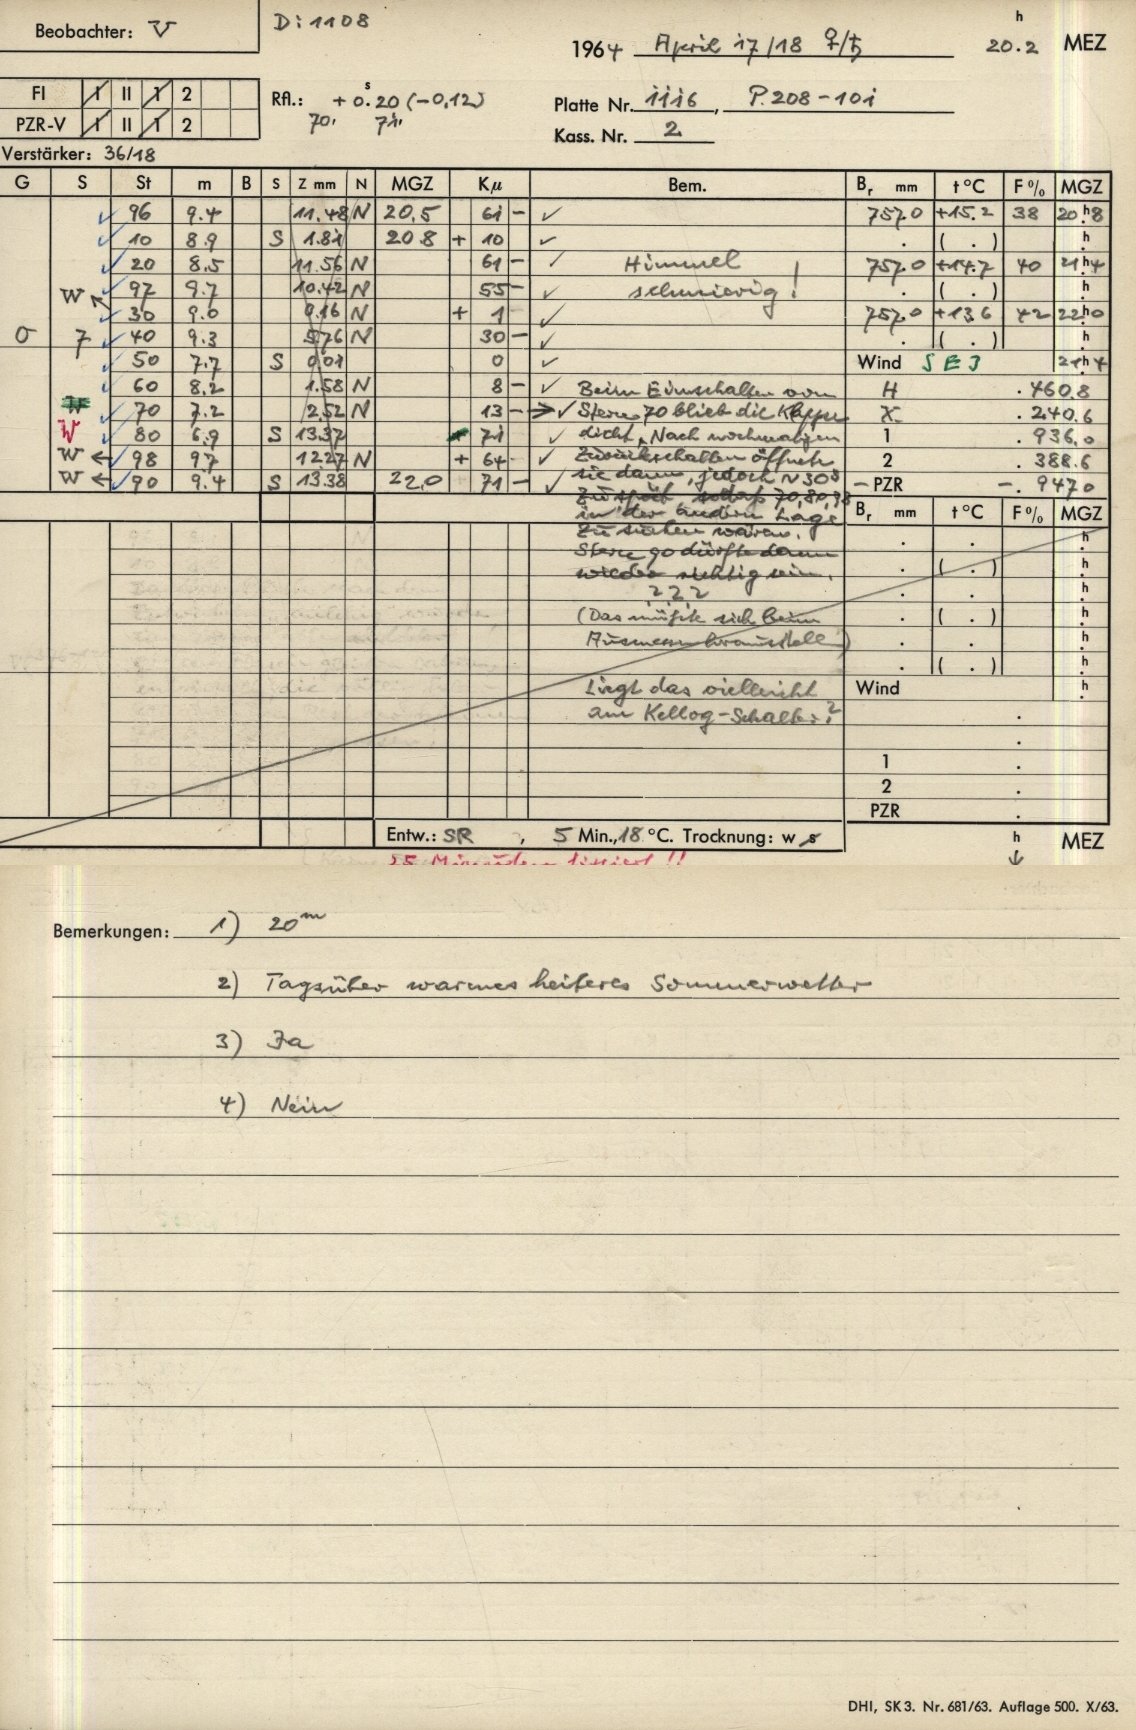 Beobachter: V
D: 1108
1964 April 17/18 ♀/♄ 20.2 h MEZ
FI I II 1 2
PZR-V I II 1 2
Rfl.: + 0.ˢ20 (-0,12)
70, 71,
Platte Nr. 1116, P. 208-101
Kass. Nr. 2
Verstärker: 36/18
G S St m B S Z mm N MGZ Kμ Bem. Br mm t°C F% MGZ
96 9.4 11.48 N 20,5 61 - 757.0 +15.2 38 20.h8
10 8.9 S 1.81 20 8 + 10 . ( . ) h
20 8.5 11.56 N 61 - Himmel 757.0 +14.7 40 21h4
W 97 9.7 10.42 N 55 - schmierig! . ( . ) h
30 9.0 0.16 N + 1 757.0 +13.6 42 22h0
0 7 40 9.3 5.76 N 30 - . ( . ) h
50 7.7 S 0.01 0 Wind SE 3 21h4
60 8.2 1.58 N 8 - Beim Einschalten vom H . 460.8
W 70 7.2 2.52 N 13 - → Stern 70 blieb die Klappe X . 240.6
W 80 6.9 S 13.37 71 dicht. Nach nochmaligem 1 . 936.0
W ← 98 9.7 12.27 N + 64 Zurückschalten öffnete 2 . 388.6
W ← 90 9.4 S 13.38 22,0 71 - sie dann, jedoch ~ 30s - PZR -. 947.0
zu spät, sodaß 70, 80, 98
in der andern Lage
Br mm t°C F% MGZ
zu suchen wären. . . h
Stern 90 dürfte dann . ( . ) h
wieder richtig sein. . . h
? ? ?
(Das müßte sich beim . ( . ) h
Ausmessen herausstellen) . . h
. ( . ) h
Liegt das vielleicht Wind h
am Kellog-Schalter? .
.
1 .
2 .
PZR .
Entw.: SR, 5 Min., 18 °C. Trocknung: w s h MEZ
↓
Bemerkungen: 1) 20ᵐ
2) Tagsüber warmes heiteres Sommerwetter
3) Ja
4) Nein
DHI, SK 3. Nr. 681/63. Auflage 500. X/63.